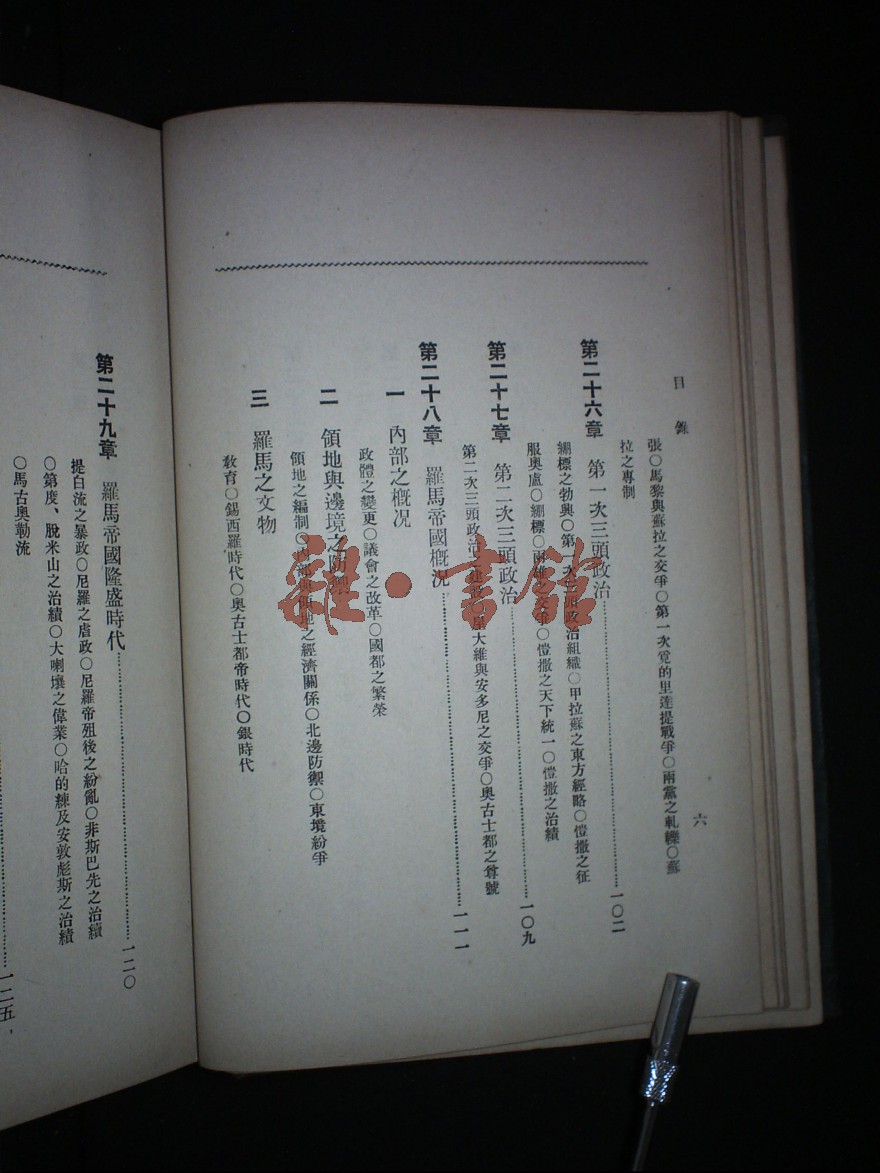 目錄
六
張〇馬黎與蘇拉之交爭〇第一次覓的里達提戰爭〇兩黨之軋轢〇蘇
拉之專制
第二十六章 第一次三頭政治……一〇二
綳標之勃興〇第一次三頭政治組織〇甲拉蘇之東方經略〇愷撒之征
服奧盧〇綳標、兩雄之交爭〇愷撒之天下統一〇愷撒之治績
第二十七章 第二次三頭政治……一〇九
第二次三頭政治之 大維與安多尼之交爭〇奧古士都之尊號
第二十八章 羅馬帝國概況……一一一
一 內部之概況
政體之變更〇議會之改革〇國都之繁榮
二 領地與邊境之防禦
領地之編制〇內部與領地之經濟關係〇北邊防禦〇東境紛爭
三 羅馬之文物
教育〇錫西羅時代〇奧古士都帝時代〇銀時代
第二十九章 羅馬帝國隆盛時代……一二〇
提白流之暴政〇尼羅之虐政〇尼羅帝殂後之紛亂〇非斯巴先之治績
〇第度、脫米山之治績〇大喇壤之偉業〇哈的練及安敦彪斯之治績
〇馬古奧勒流
……一二五
雜·書館